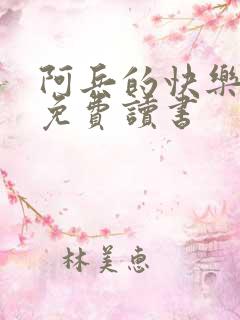 阿兵的快樂
免費讀書
林美惠